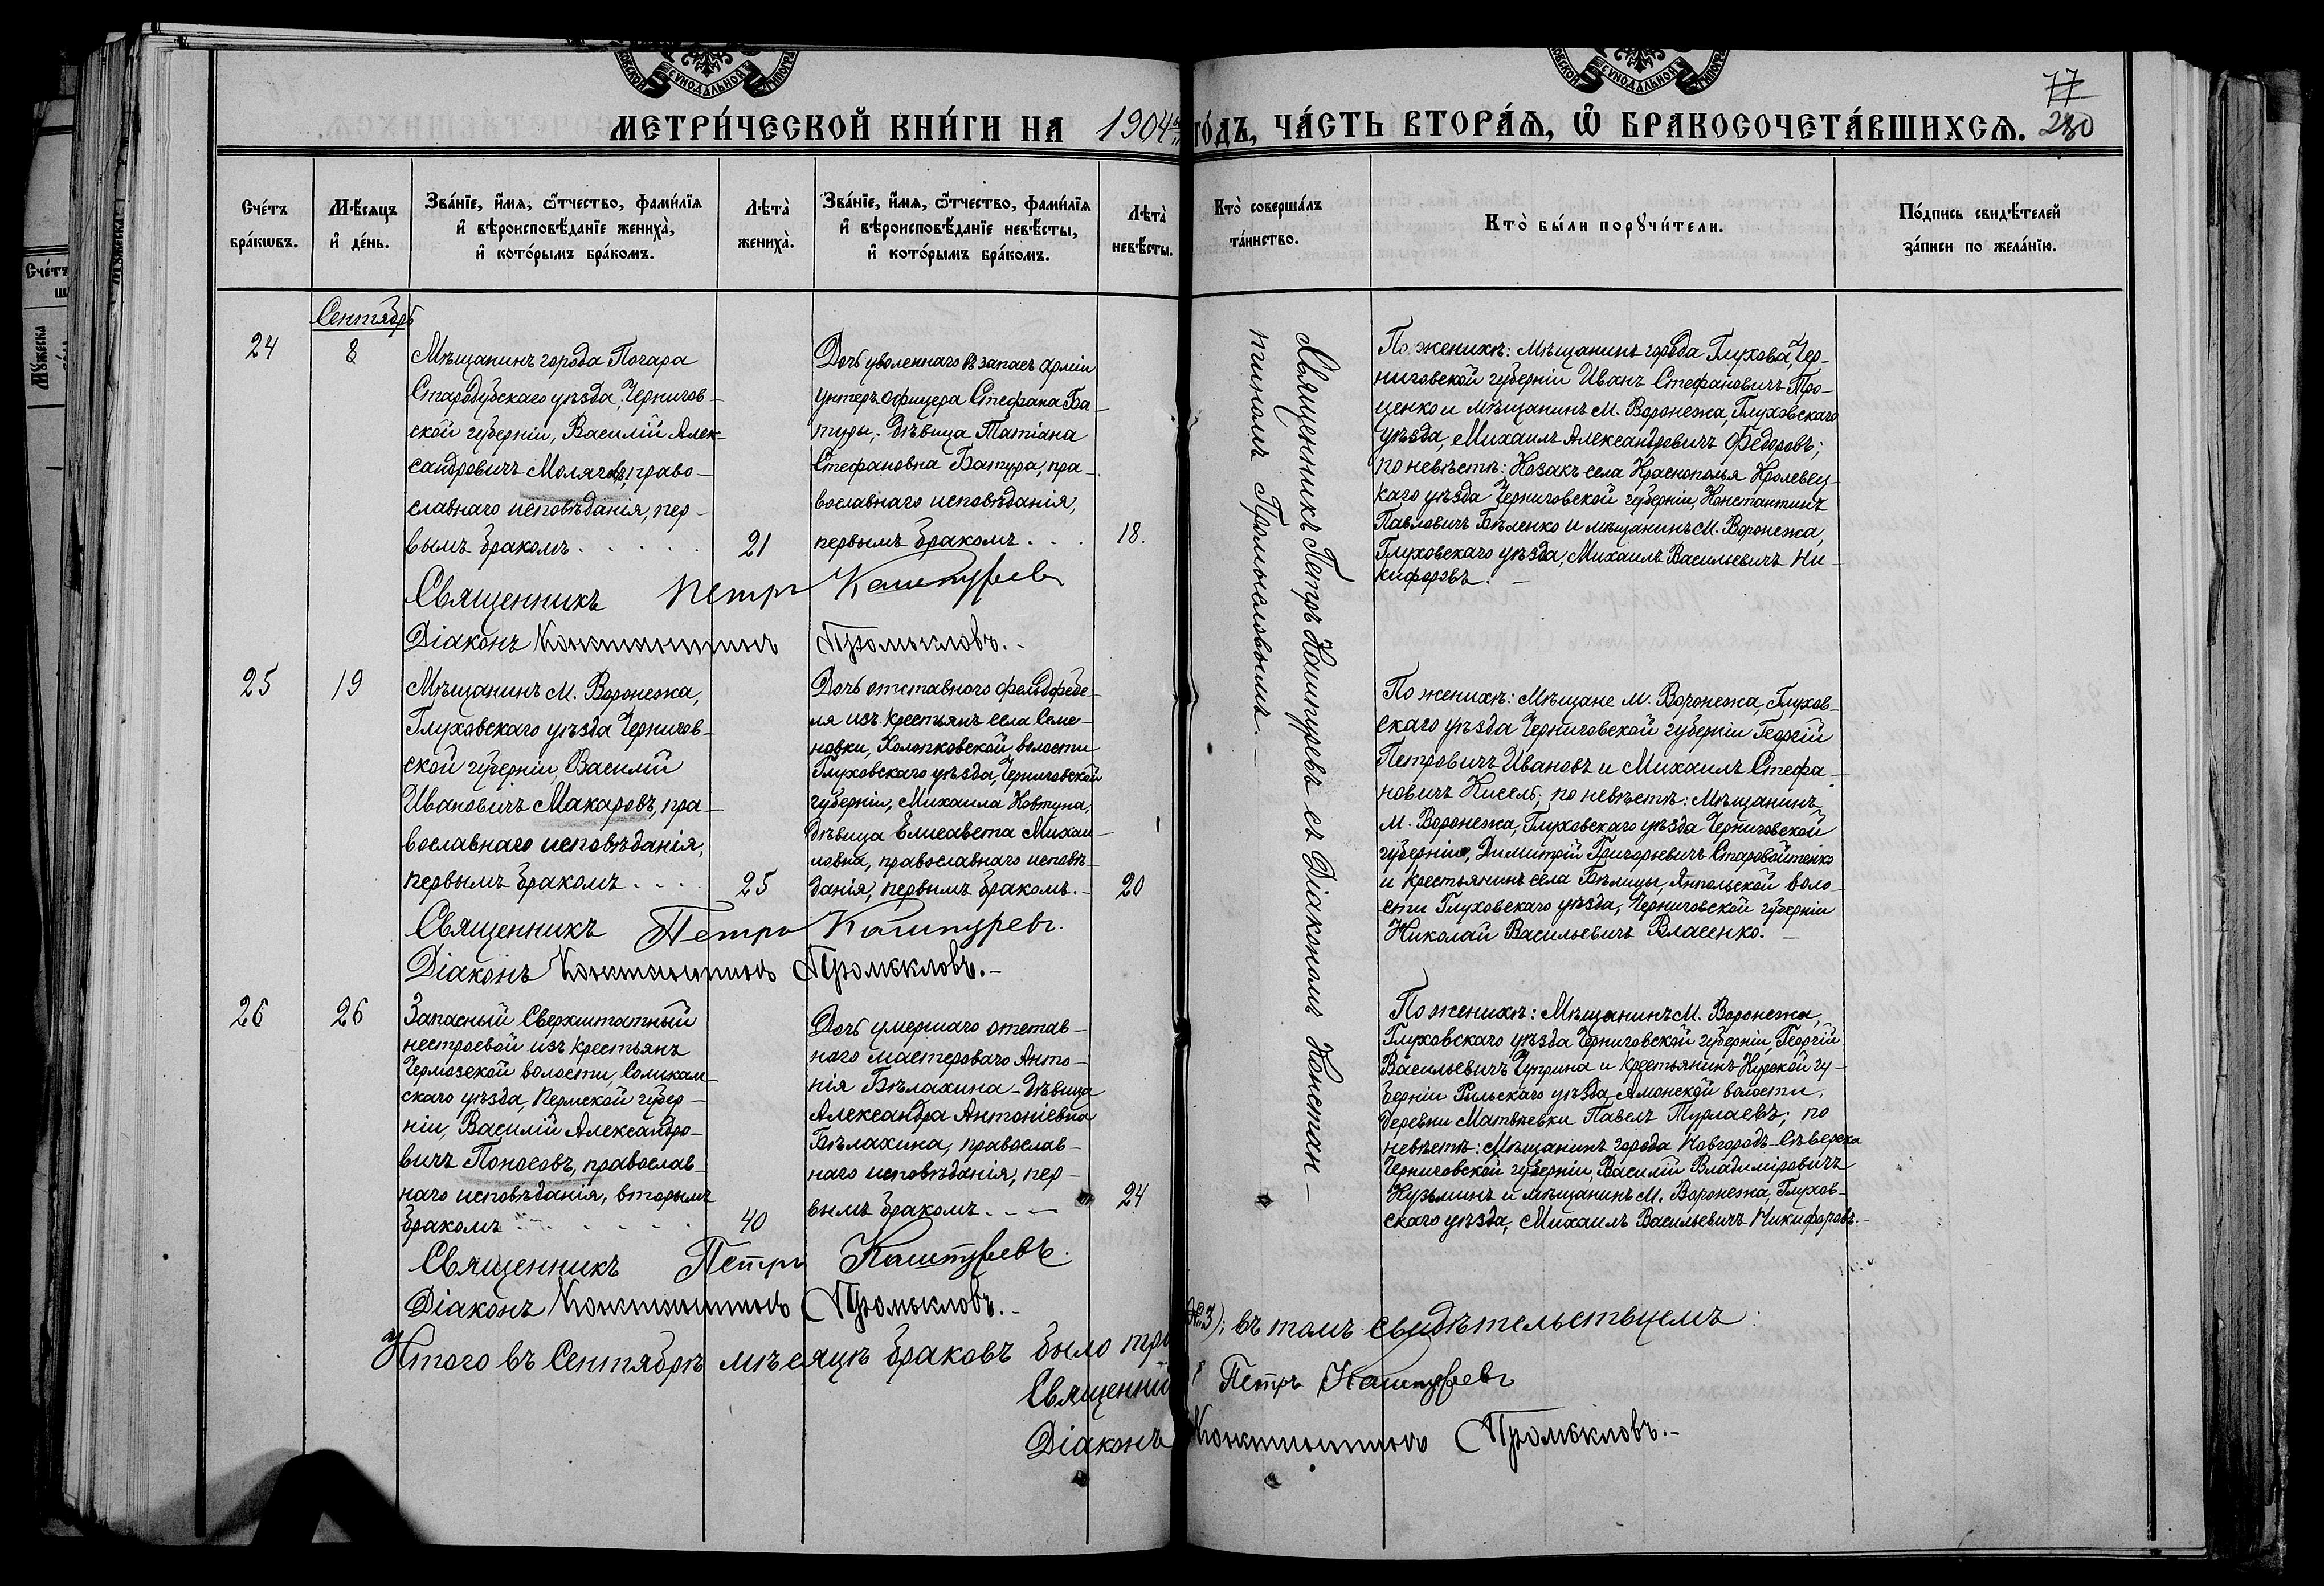 СѴНОДАЛЬНОЙ
СѴНОДАЛЬНОЙ
МЕТРИ́ЧЕСКОЙ КНИ́ГИ НА 1904 ГО́ДЪ, ЧА́СТЬ ВТОРА́Я, Ѿ БРАКОСОЧЕТА́ВШИХСЯ.
77
280
Сче́тъ бра́кѡвъ.
Мѣ́сяцъ и҆ де́нь.
Зва́нїе, и҆́мя, ѻ҆́тчество, фами́лїя и҆ вѣроисповѣ́данїе жениха̀, и҆ кото́рымъ бра́комъ.
Лѣта̀ жениха̀.
Зва́нїе, и҆́мя, ѻ҆́тчество, фами́лїя и҆ вѣроисповѣ́данїе невѣ́сты, и҆ кото́рымъ бра́комъ.
Лѣта̀ невѣ́сты.
Кто̀ соверша́лъ та́инство.
Кто̀ бы́ли порꙋчи́тели.
По́дпись свидѣ́телей за́писи по жела́нїю.
Сентябрь
24
8
Мѣщанинъ города Погара
Стародубскаго уѣзда, Чернигов-
ской губерніи, Василій Алек-
сандровичъ Молячовъ, право-
славнаго исповѣданія, пер-
вымъ бракомъ . . . . .
21
Дочь уволеннаго въ запасъ арміи
унтеръ-офицера Стефана Ба-
туры, дѣвица Татіана
Стефановна Батура, пра-
вославнаго исповѣданія,
первымъ бракомъ . . .
18.
По женихѣ: мѣщанинъ города Глухова, Чер-
ниговской губерніи Иванъ Стефановичъ Про-
ценко и мѣщанинъ М. Воронежа, Глуховскаго
уѣзда, Михаилъ Александровичъ Федоровъ;
по невѣстѣ: Козакъ села Краснополья Кролевец-
каго уѣзда Черниговской губерніи, Константинъ
Павловичъ Бѣленко и мѣщанинъ М. Воронежа,
Глуховскаго уѣзда, Михаилъ Васильевичъ Ни-
кифоровъ. —
Священникъ Петръ Каштуревъ
Діаконъ Константинъ Промысловъ.-
Священникъ Петръ Каштуревъ съ Діакономъ Констан-
тиномъ Промысловымъ. —
25
19
Мѣщанинъ М. Воронежа,
Глуховскаго уѣзда Чернигов-
ской губерніи, Василій
Ивановичъ Макаровъ, пра-
вославнаго исповѣданія,
первымъ бракомъ . . . .
25
Дочь отставного фельдфебе-
ля изъ крестьянъ села Семе-
новки, Холопковской волости
Глуховскаго уѣзда, Черниговской
губерніи, Михаила Ковтуна,
дѣвица Елисавета Михаи-
ловна, православнаго исповѣ-
данія, первымъ бракомъ. -
20
По женихѣ: Мѣщане М. Воронежа, Глухов-
скаго уѣзда Черниговской губерніи Георгій
Петровичъ Ивановъ и Михаилъ Стефа-
новичъ Кисель; по невѣстѣ: мѣщанинъ
М. Воронежа, Глуховскаго уѣзда Черниговской
губерніи, Димитрій Григорьевичъ Старовойтенко
и крестьянинъ села Бѣлицы, Янпольской воло-
сти Глуховскаго уѣзда, Черниговской губерніи
Николай Васильевичъ Власенко. —
Священникъ Петръ Каштуревъ.
Діаконъ Константинъ Промысловъ.-
26
26
Запасный Сверхштатный
нестроевой изъ крестьянъ
Чермозской волости, Соликам-
скаго уѣзда, Пермской губер-
ніи, Василій Александро-
вичъ Поносовъ, православ-
наго исповѣданія, вторымъ
бракомъ . . . . . .
40
Дочь умершаго отстав-
ного мастерового Анто-
нія Бѣлахина - дѣвица
Александра Антоніевна
Бѣлахина, православ-
наго исповѣданія, пер-
вымъ бракомъ. - —
24
По женихѣ: Мѣщанинъ М. Воронежа,
Глуховскаго уѣзда Черниговской губерніи, Георгій
Васильевичъ Чуприна и крестьянинъ Курской гу-
берніи Рильскаго уѣзда, Амонской волости,
деревни Матвѣевки Павелъ Турлаевъ; по
невѣстѣ: Мѣщанинъ города Новгородъ-Сѣверска
Черниговской губерніи, Василій Владиміровичъ
Кузьминъ и мѣщанинъ М. Воронежа, Глухов-
скаго уѣзда, Михаилъ Васильевичъ Никифоровъ.-
Священникъ Петръ Каштуревъ.
Діаконъ Константинъ Промысловъ.-
Итого въ Сентябрѣ мѣсяцѣ браковъ было три (№ 3); въ томъ свидѣтельствуемъ:
Священни Петръ Каштуревъ
Діаконъ Константинъ Промысловъ.-